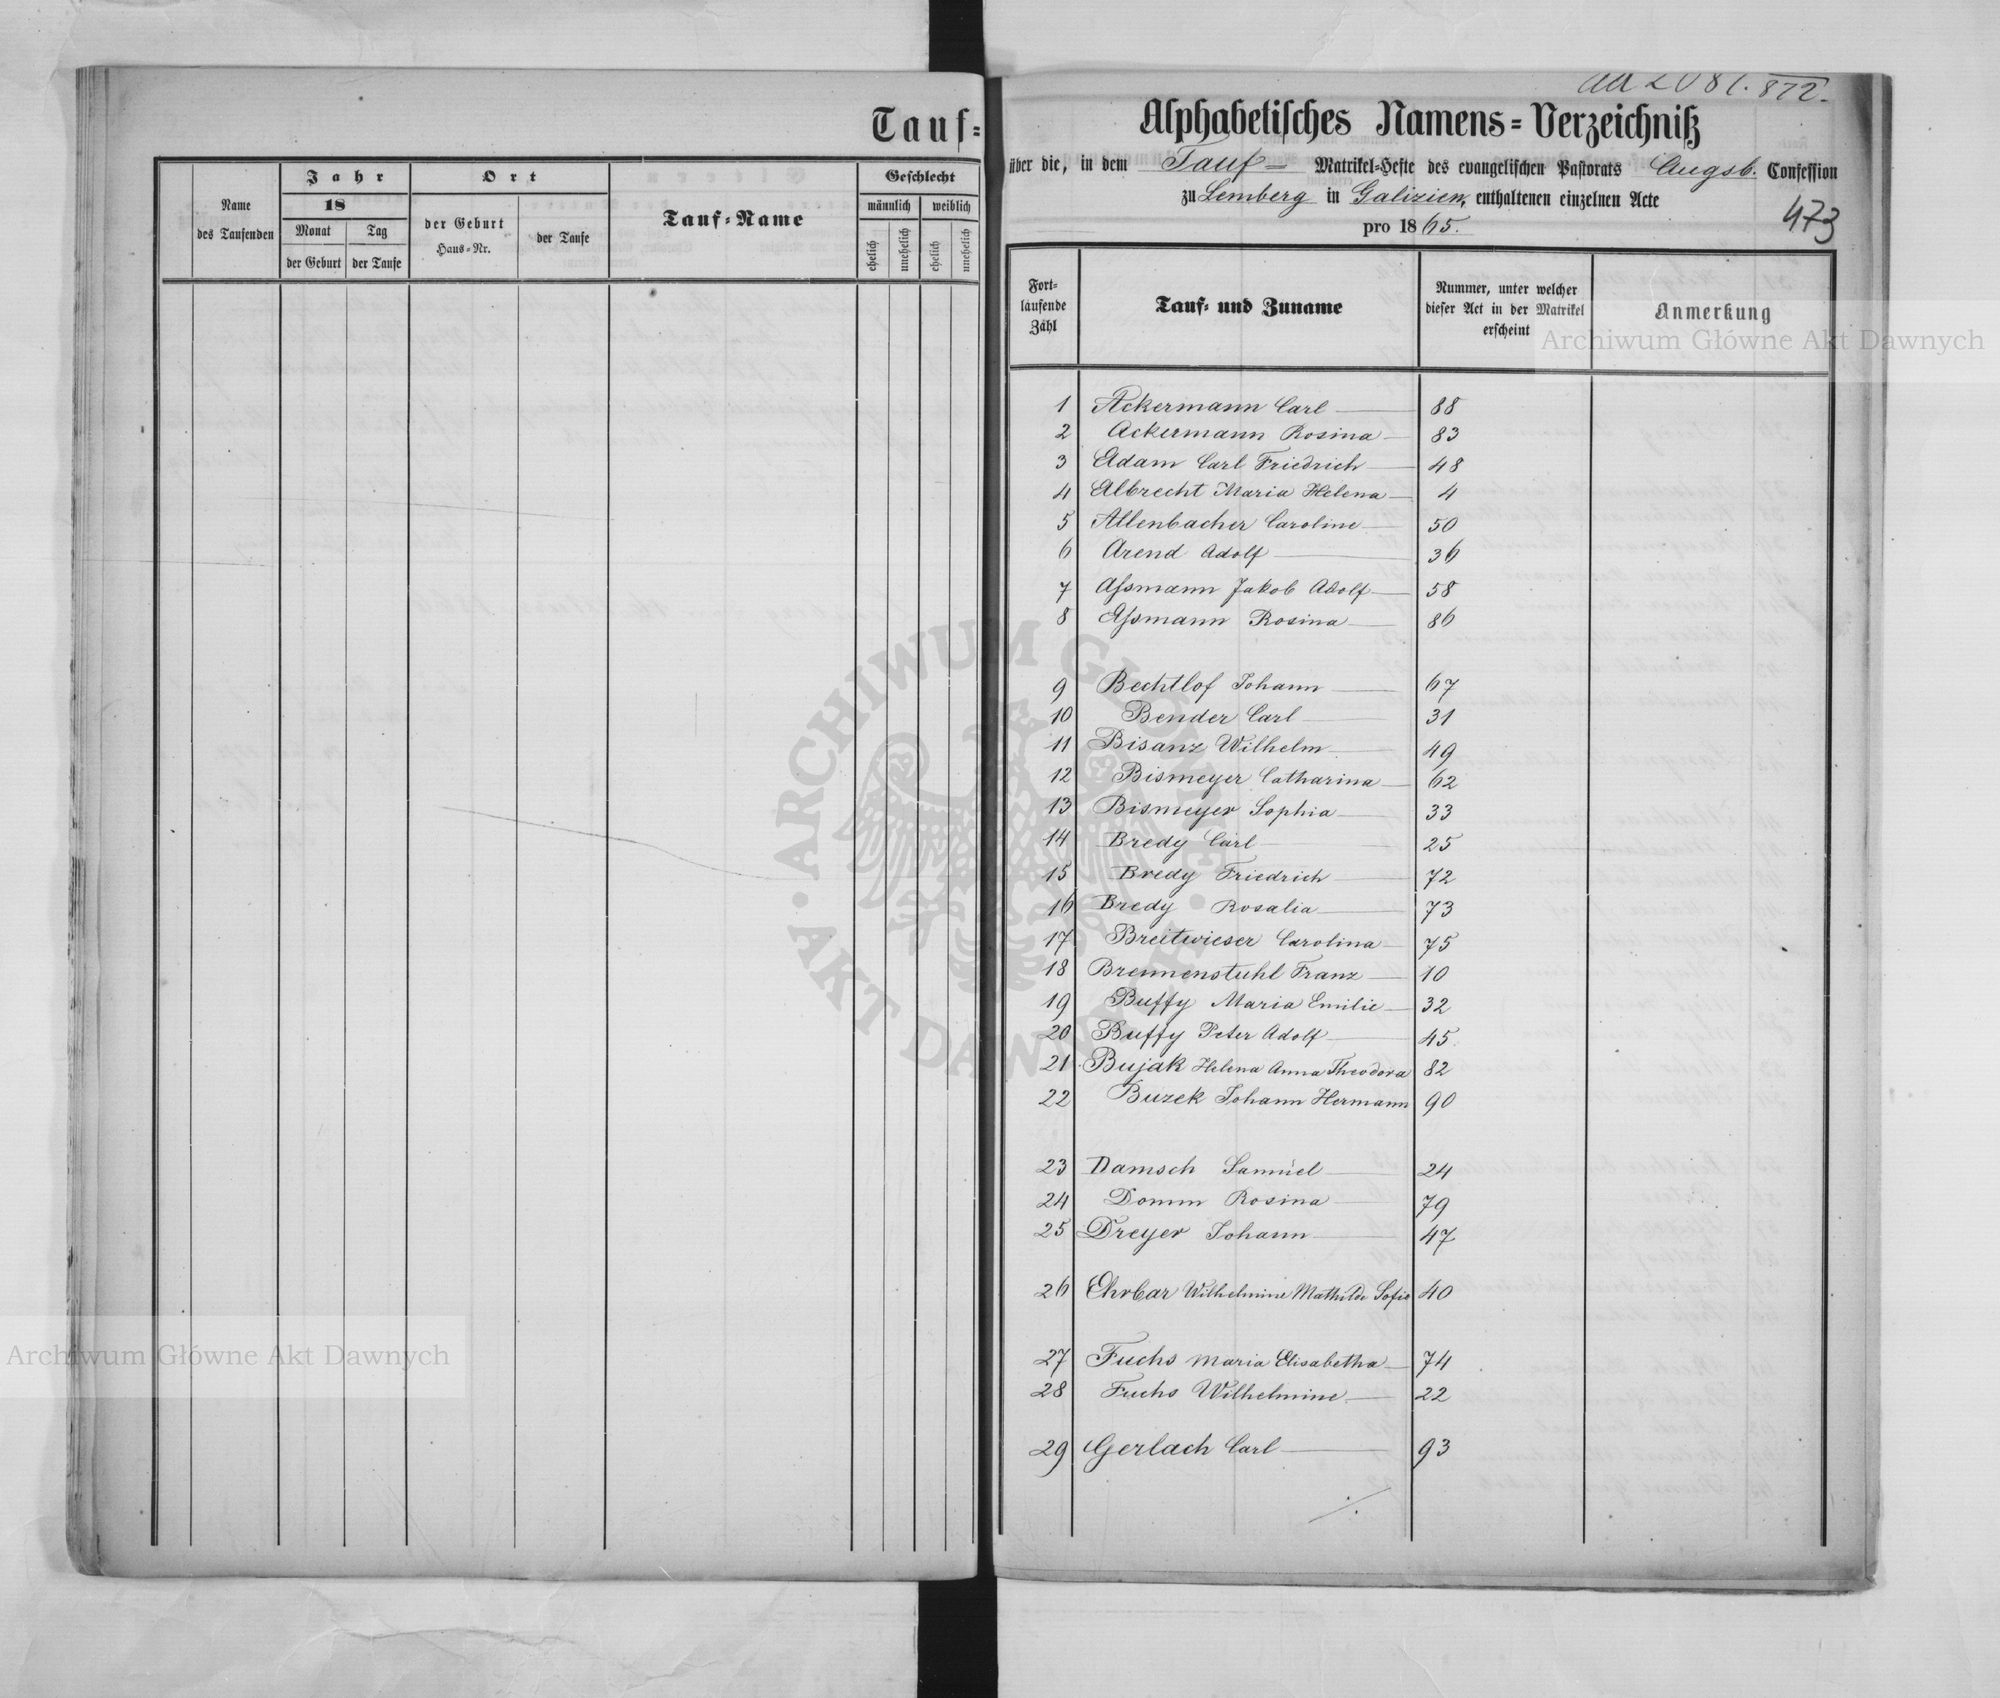 Tauf=
Name des Taufenden
Jahr
18
Monat der Geburt
Tag der Taufe
Ort
der Geburt Haus=Nr.
der Taufe
Tauf=Name
Geschlecht
männlich weiblich
ehelich unehelich ehelich unehelich
872.
Alphabetisches Namens=Verzeichniß
über die, in dem Tauf= Matrikel=Hefte des evangelischen Pastorats Augsb. Confession
zu Lemberg in Galizien, enthaltenen einzelnen Acte
pro 1865.
473
Fort=laufende Zahl
Tauf= und Zuname
Nummer, unter welcher dieser Act in der Matrikel erscheint
Anmerkung
1 Ackermann Carl 88
2 Ackermann Rosina 83
3 Adam Carl Friedrich 48
4 Albrecht Maria Helena 4
5 Allenbacher Caroline 50
6 Arend Adolf 36
7 Aſsmann Jakob Adolf 58
8 Aſsmann Rosina 86
9 Bechtlof Johann 67
10 Bender Carl 31
11 Bisanz Wilhelm 49
12 Bismeyer Catharina 62
13 Bismeyer Sophia 33
14 Bredy Carl 25
15 Bredy Friedrich 72
16 Bredy Rosalia 73
17 Breitwieser Carolina 75
18 Brennenstuhl Franz 10
19 Buffy Maria Emilie 32
20 Buffy Peter Adolf 45
21 Bujak Helena Anna Theodora 82
22 Buzek Johann Hermann 90
23 Damsch Samuel 24
24 Domm Rosina 79
25 Dreyer Johann 47
26 Ehrbar Wilhelmine Mathilde Sofie 40
27 Fuchs Maria Elisabetha 74
28 Fuchs Wilhelmine 22
29 Gerlach Carl 93
Archiwum Główne Akt Dawnych
Archiwum Główne Akt Dawnych
ARCHIWUM GŁÓWNE AKT DAWNYCH